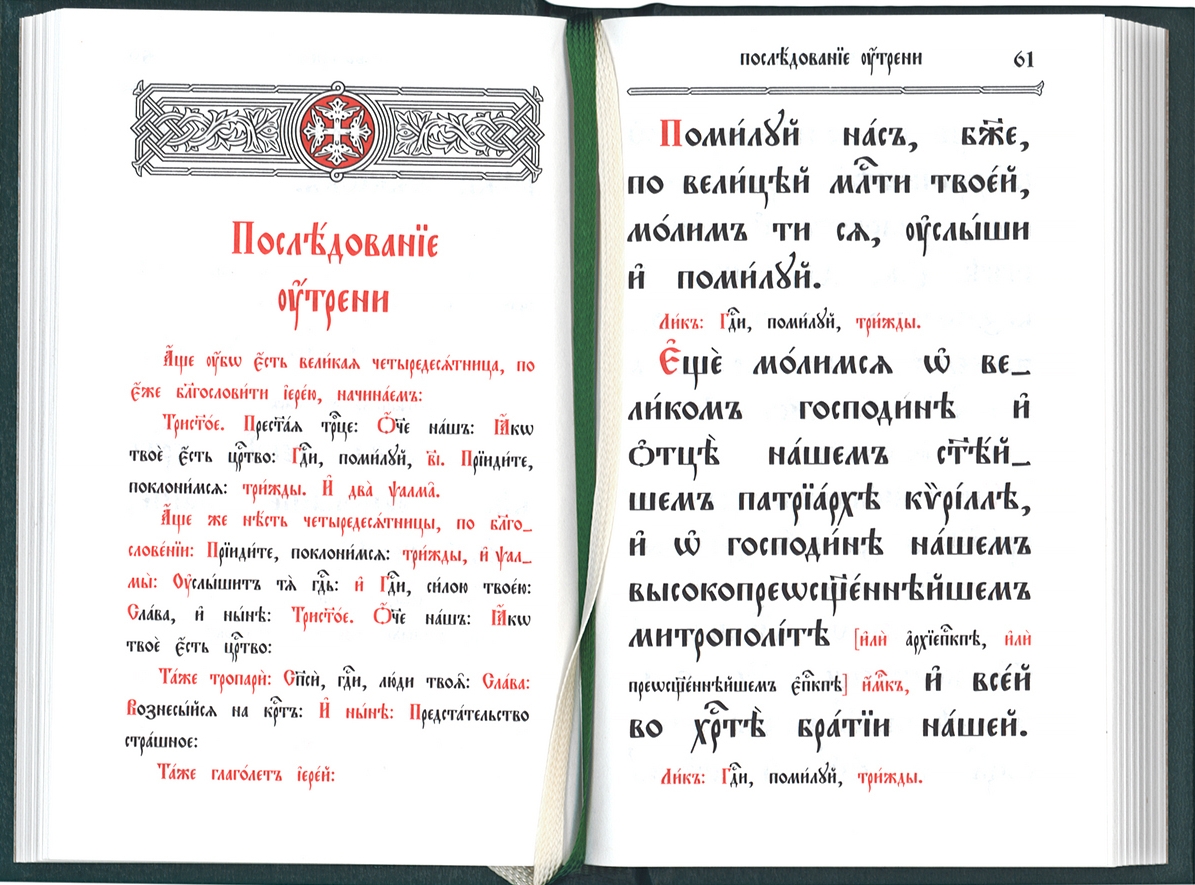 Послѣ́дованїе
ᲂу҆́трени
А҆́ще ᲂу҆́бѡ є҆́сть вели́каѧ четыредесѧ́тница, по
є҆́же бл҃гослови́ти і҆ере́ю, начина́емъ:
Трист҃о́е. Прест҃а́ѧ трⷪ҇це: Ѻ҆́ч҃е на́шъ: Ꙗ҆́кѡ
твоѐ є҆́сть црⷭ҇тво: Гдⷭ҇и, поми́лꙋй, в҃і. Прїиди́те,
поклони́мсѧ: три́жды. И҆ два̀ ѱалма̑.
А҆́ще же нѣ́сть четыредесѧ́тницы, по бл҃го_
слове́нїи: Прїиди́те, поклони́мсѧ: три́жды, и҆ ѱал_
мы̀: Оу҆слы́шитъ тѧ̀ гдⷭ҇ь: и҆ Гдⷭ҇и, си́лою твое́ю:
Сла́ва, и҆ ны́нѣ: Трист҃о́е. Ѻ҆́ч҃е на́шъ: Ꙗ҆́кѡ
твоѐ є҆́сть црⷭ҇тво:
Та́же тропарѝ: Сп҃сѝ, гдⷭ҇и, лю́ди твоѧ̑: Сла́ва:
Вознесы́йсѧ на крⷭ҇тъ: И҆ ны́нѣ: Предста́тельство
стра́шное:
Та́же глаго́летъ і҆ере́й:
послѣ́дованїе ᲂу҆́трени 61
Поми́лꙋй на́съ, бж҃е,
по вели́цѣй млⷭ҇ти твое́й,
мо́лимъ ти сѧ, ᲂу҆слы́ши
и҆ поми́лꙋй.
Ли́къ: Гдⷭ҇и, поми́лꙋй, три́жды.
Є҆щѐ мо́лимсѧ ѡ҆ ве_
ли́комъ господи́нѣ и҆
ѻ҆тцѣ̀ на́шемъ ст҃ѣ́й_
шемъ патрїа́рхѣ кѷрі́ллѣ,
и҆ ѡ҆ господи́нѣ на́шемъ
высокопреѡсщ҃е́ннѣйшемъ
митрополі́тѣ [и҆лѝ а҆рхїепⷭ҇кпѣ, и҆лѝ
преѡсщ҃е́ннѣйшемъ є҆пⷭ҇кпѣ] и҆́мⷬ҇къ, и҆ все́й
во хрⷭ҇тѣ̀ бра́тїи на́шей.
Ли́къ: Гдⷭ҇и, поми́лꙋй, три́жды.